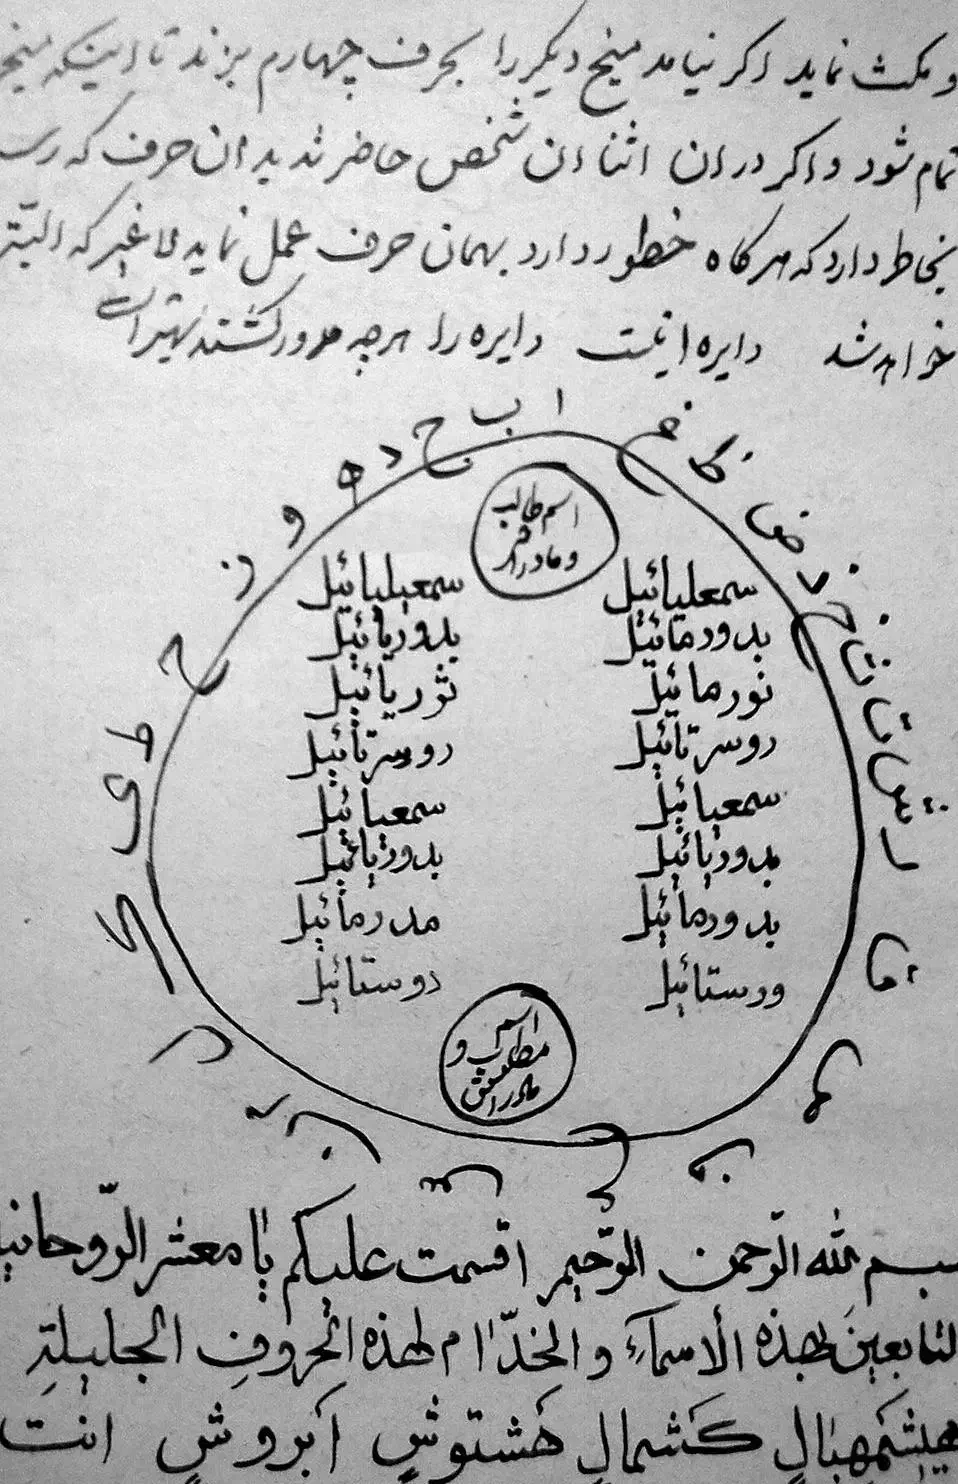 و مکث نماید اکر نیامد میخ دیکر را بحرف چهارم بزند تا اینکه میخ
تمام شود و اکر در ان اثنا ان شخص حاضر شد بدان حرف که رسد
بخاطر دارد که هرکاه خطور دارد بهمان حرف عمل نماید لا غیر که البته
خواهد شد دایره اینست دایره را هر چه مدور کشند بهتر است
ا ب ج د ه و ز ح ط ی ک ل م ن س ع ف ص ق ر ش ت ث خ ذ ض ظ غ
اسم طالب
و مادرش
سمعلیائیل سمعیلیائیل
بدودمائیل بدوریائیل
نورهائیل نوریائیل
روسرتائیل روسرتائیل
سمعیائیل سمعیائیل
بدوریائیل بدوریائیل
بدودمائیل مدرمائیل
ورستائیل دوستائیل
اسم
مطلوب و
مادرش
بسم الله الرحمن الرحیم اقسمت علیکم یا معشر الروحانیة
التابعین بهذه الاسماء و الخدام لهذه الحروف الجلیلة
کشمالٍ هشتوشٍ ابروشٍ انت